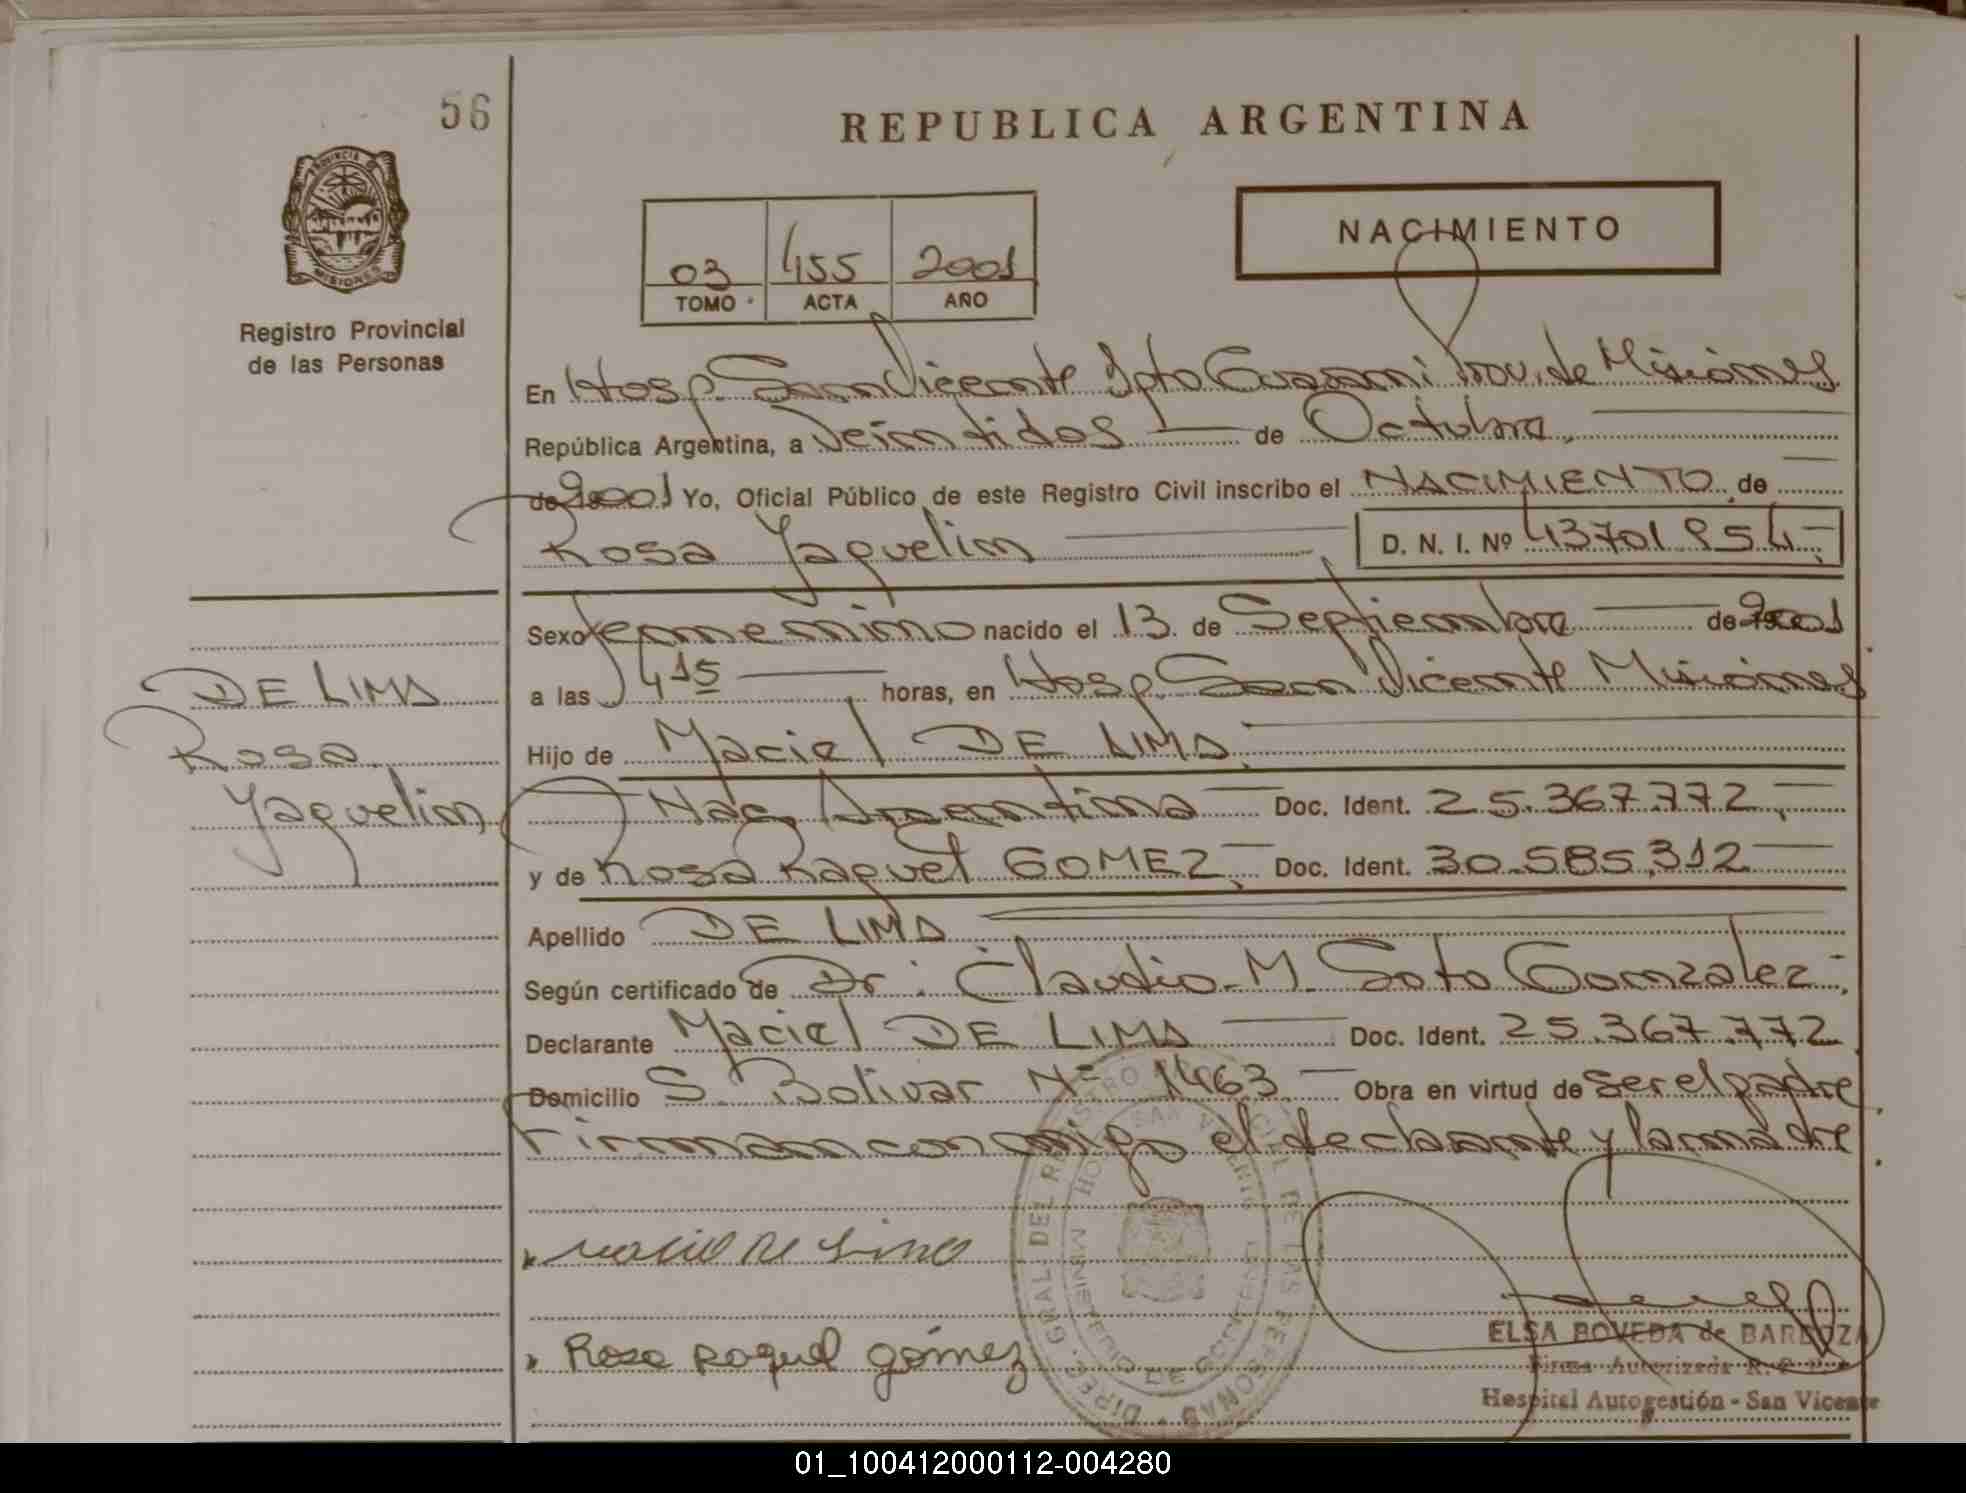 56
REPUBLICA ARGENTINA
PROVINCIA DE
MISIONES
Registro Provincial
de las Personas
03 455 2001
TOMO ACTA AÑO
NACIMIENTO
En Hosp. San Vicente Dpto Guarani Prov. de Misiones
República Argentina, a Veintidos de Octubre
de 2001 Yo, Oficial Público de este Registro Civil inscribo el NACIMIENTO de
Rosa Yaquelin D. N. I. Nº 43701854
Sexo femenino nacido el 13 de Septiembre de 2001
a las 4 15 horas, en Hosp. San Vicente Misiones
Hijo de Maciel DE LIMA
Nac. Argentina Doc. Ident. 25.367.772
y de Rosa Raquel GOMEZ Doc. Ident. 30.585.312
Apellido DE LIMA
Según certificado de Dr: Claudio M. Soto Gonzalez
Declarante Maciel DE LIMA Doc. Ident. 25.367.772
Domicilio S. Bolivar Nº 1463 Obra en virtud de ser el padre
Firman conmigo el declarante y la madre
DE LIMA
Rosa
Yaquelin
Rosa raquel gómez
ELSA BOVEDA de BARBOZA
Firma Autorizada
Hospital Autogestión - San Vicente
01_100412000112-004280